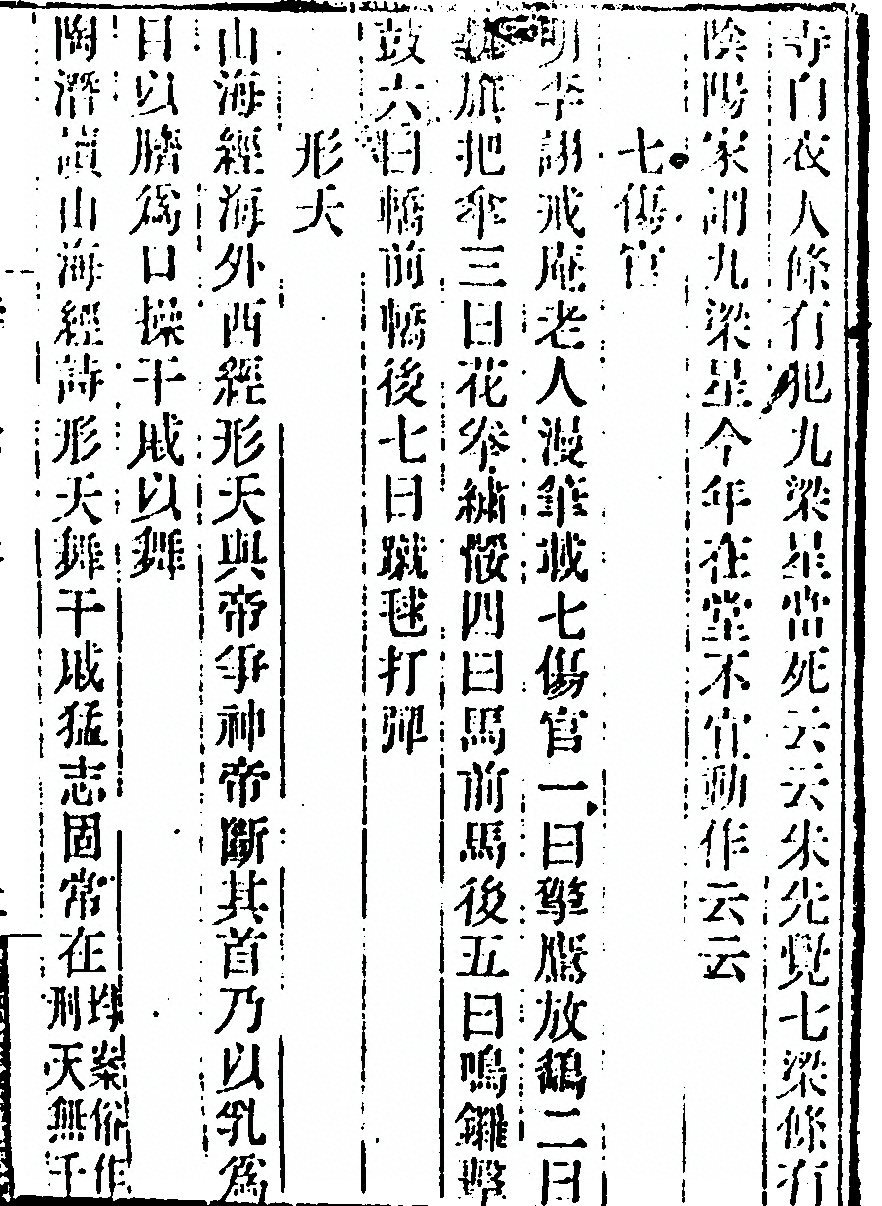 寺白衣人條有犯九梁星當死云云朱先覺七梁條有
陰陽家謂九梁星今年在堂不宜動作云云
七傷官
明李詡戒庵老人漫筆載七傷官一曰擎鷹放鷂二曰
旗把傘三曰花拳繡腿四曰馬前馬後五曰鳴鑼擊
鼓六曰轎前轎後七曰蹴毬打彈
形天
山海經海外西經形天與帝爭神帝斷其首乃以乳爲
目以臍爲口操干戚以舞
陶潛讀山海經詩形天舞干戚猛志固常在
案俗作
刑天無千